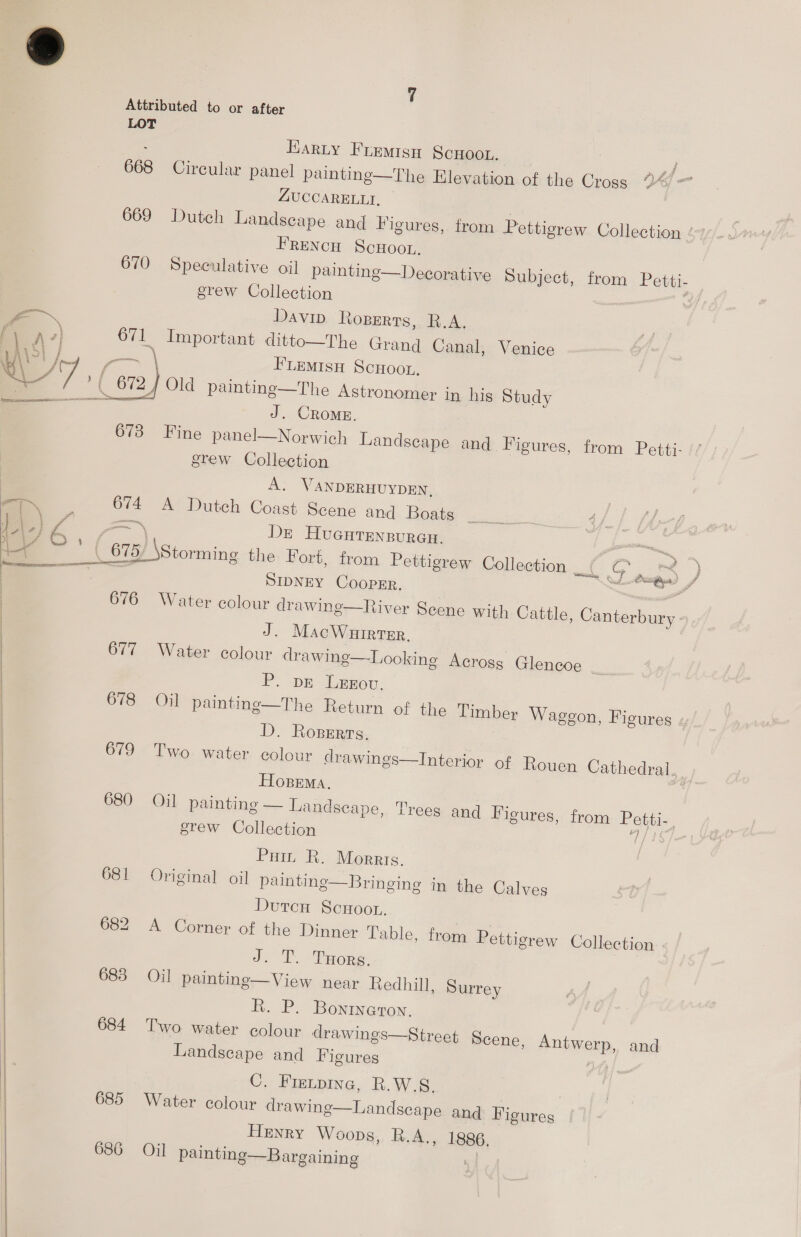 7
Attributed to or after
LOT
EARLY FLEMISH SCHOOL.
668 Circular panel painting—The Elevation of the Cross
ZUCCARELLI.
669 Dutch Landscape and Figures, from Pettigrew Collection
FRENCH SCHOOL.
670 Speculative oil painting—Decorative Subject, from Petti-
grew Collection
DAVID ROBERTS, R.A.
671 Important ditto—The Grand Canal, Venice
FLEMISH SCHOOL.
672 Old painting—The Astronomer in his Study
J. CROME.
673 Fine panel—Norwich Landscape and Figures, from Petti-
grew Collection
A. VANDERHUYDEN.
674 A Dutch Coast Scene and Boats
DE HUGHTENBURGH.
675 Storming the Fort, from Pettigrew Collection
SIDNEY COOPER.
676 Water colour drawing—River Scene with Cattle, Canterbury
J. MACWHIRTER.
677 Water colour drawing—Looking Across Glencoe
P. DE LEEOU.
678 Oil painting—The Return of the Timber Waggon, Figures
D. ROBERTS.
679 Two water colour drawings—Interior of Rouen Cathedral
HOBEMA.
680 Oil painting — Landscape, Trees and Figures, from Petti-
grew Collection
PHIL R. MORRIS.
681 Original oil painting—Bringing in the Calves
DUTCH SCHOOL.
682 A Corner of the Dinner Table, from Pettigrew Collection
J. T. THORS.
683 Oil painting—View near Redhill, Surrey
R. P. BONINGTON.
684 Two water colour drawings—Street Scene, Antwerp, and
Landscape and Figures
C. FIELDING, R.W.S.
685 Water colour drawing—Landscape and Figures
HENRY WOODS, R.A., 1886.
686 Oil painting—Bargaining